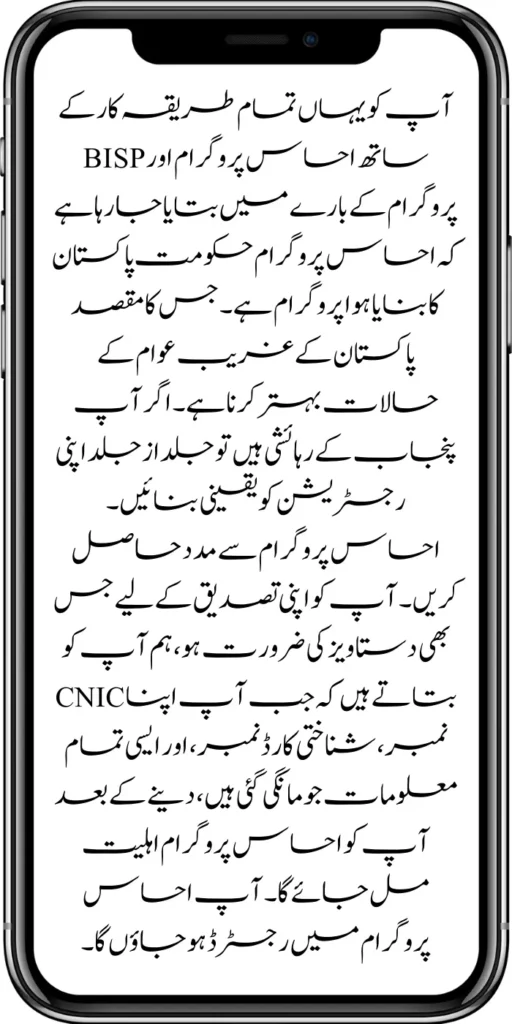 آپ کو یہاں تمام طریقہ کار کے
ساتھ احساس پروگرام اور BISP
پروگرام کے بارے میں بتایا جا رہا ہے
کہ احساس پروگرام حکومت پاکستان
کا بنایا ہوا پروگرام ہے۔ جس کا مقصد
پاکستان کے غریب عوام کے
حالات بہتر کرنا ہے۔ اگر آپ
پنجاب کے رہائشی ہیں تو جلد از جلد اپنی
رجسٹریشن کو یقینی بنائیں۔
احساس پروگرام سے مدد حاصل
کریں۔ آپ کو اپنی تصدیق کے لیے جس
بھی دستاویز کی ضرورت ہو، ہم آپ کو
بتاتے ہیں کہ جب آپ اپنا CNIC
نمبر، شناختی کارڈ نمبر، اور ایسی تمام
معلومات جو مانگی گئی ہیں، دینے کے بعد
آپ کو احساس پروگرام اہلیت
مل جائے گا۔ آپ احساس
پروگرام میں رجسٹرڈ ہو جاؤں گا۔